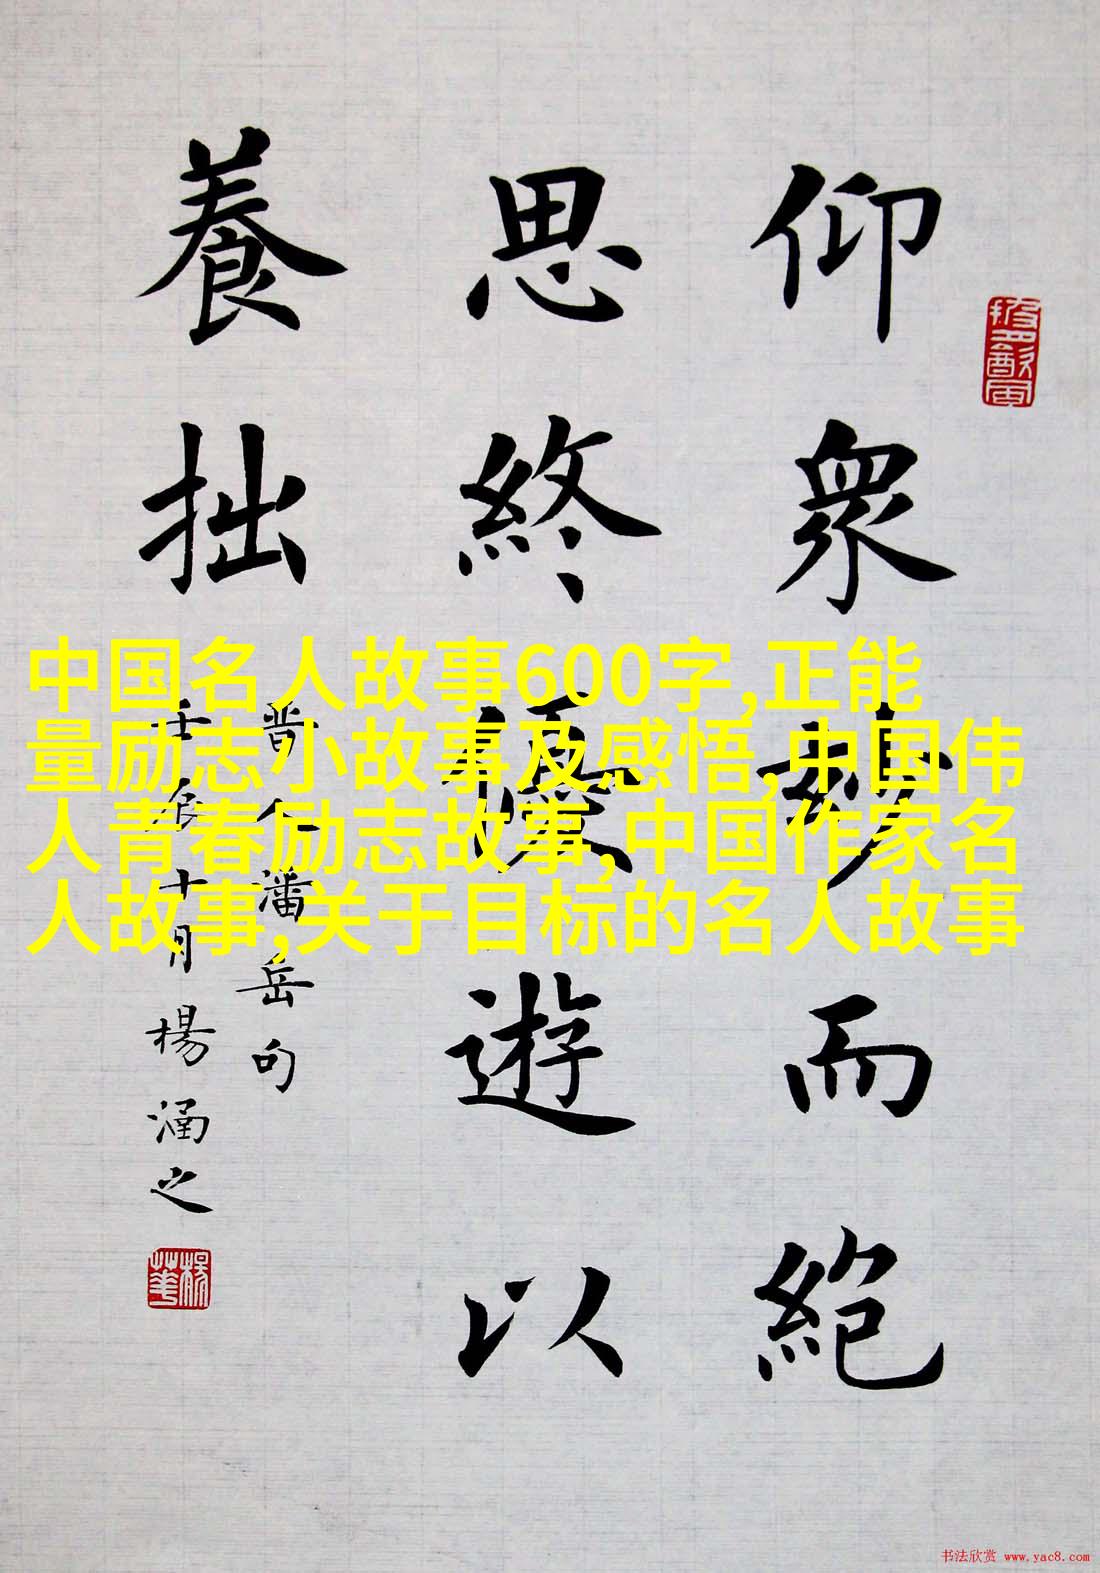 仰眾妙而絕
思終優遊以
養拙
晉人潘岳句
壬辰十月楊涵之
中国名人故事600字,正能
量励志小故事及感悟,中国伟
人青春励志故事,中国作家名
人故事,关于目标的名人故事
书法欣赏 www.yac8.com